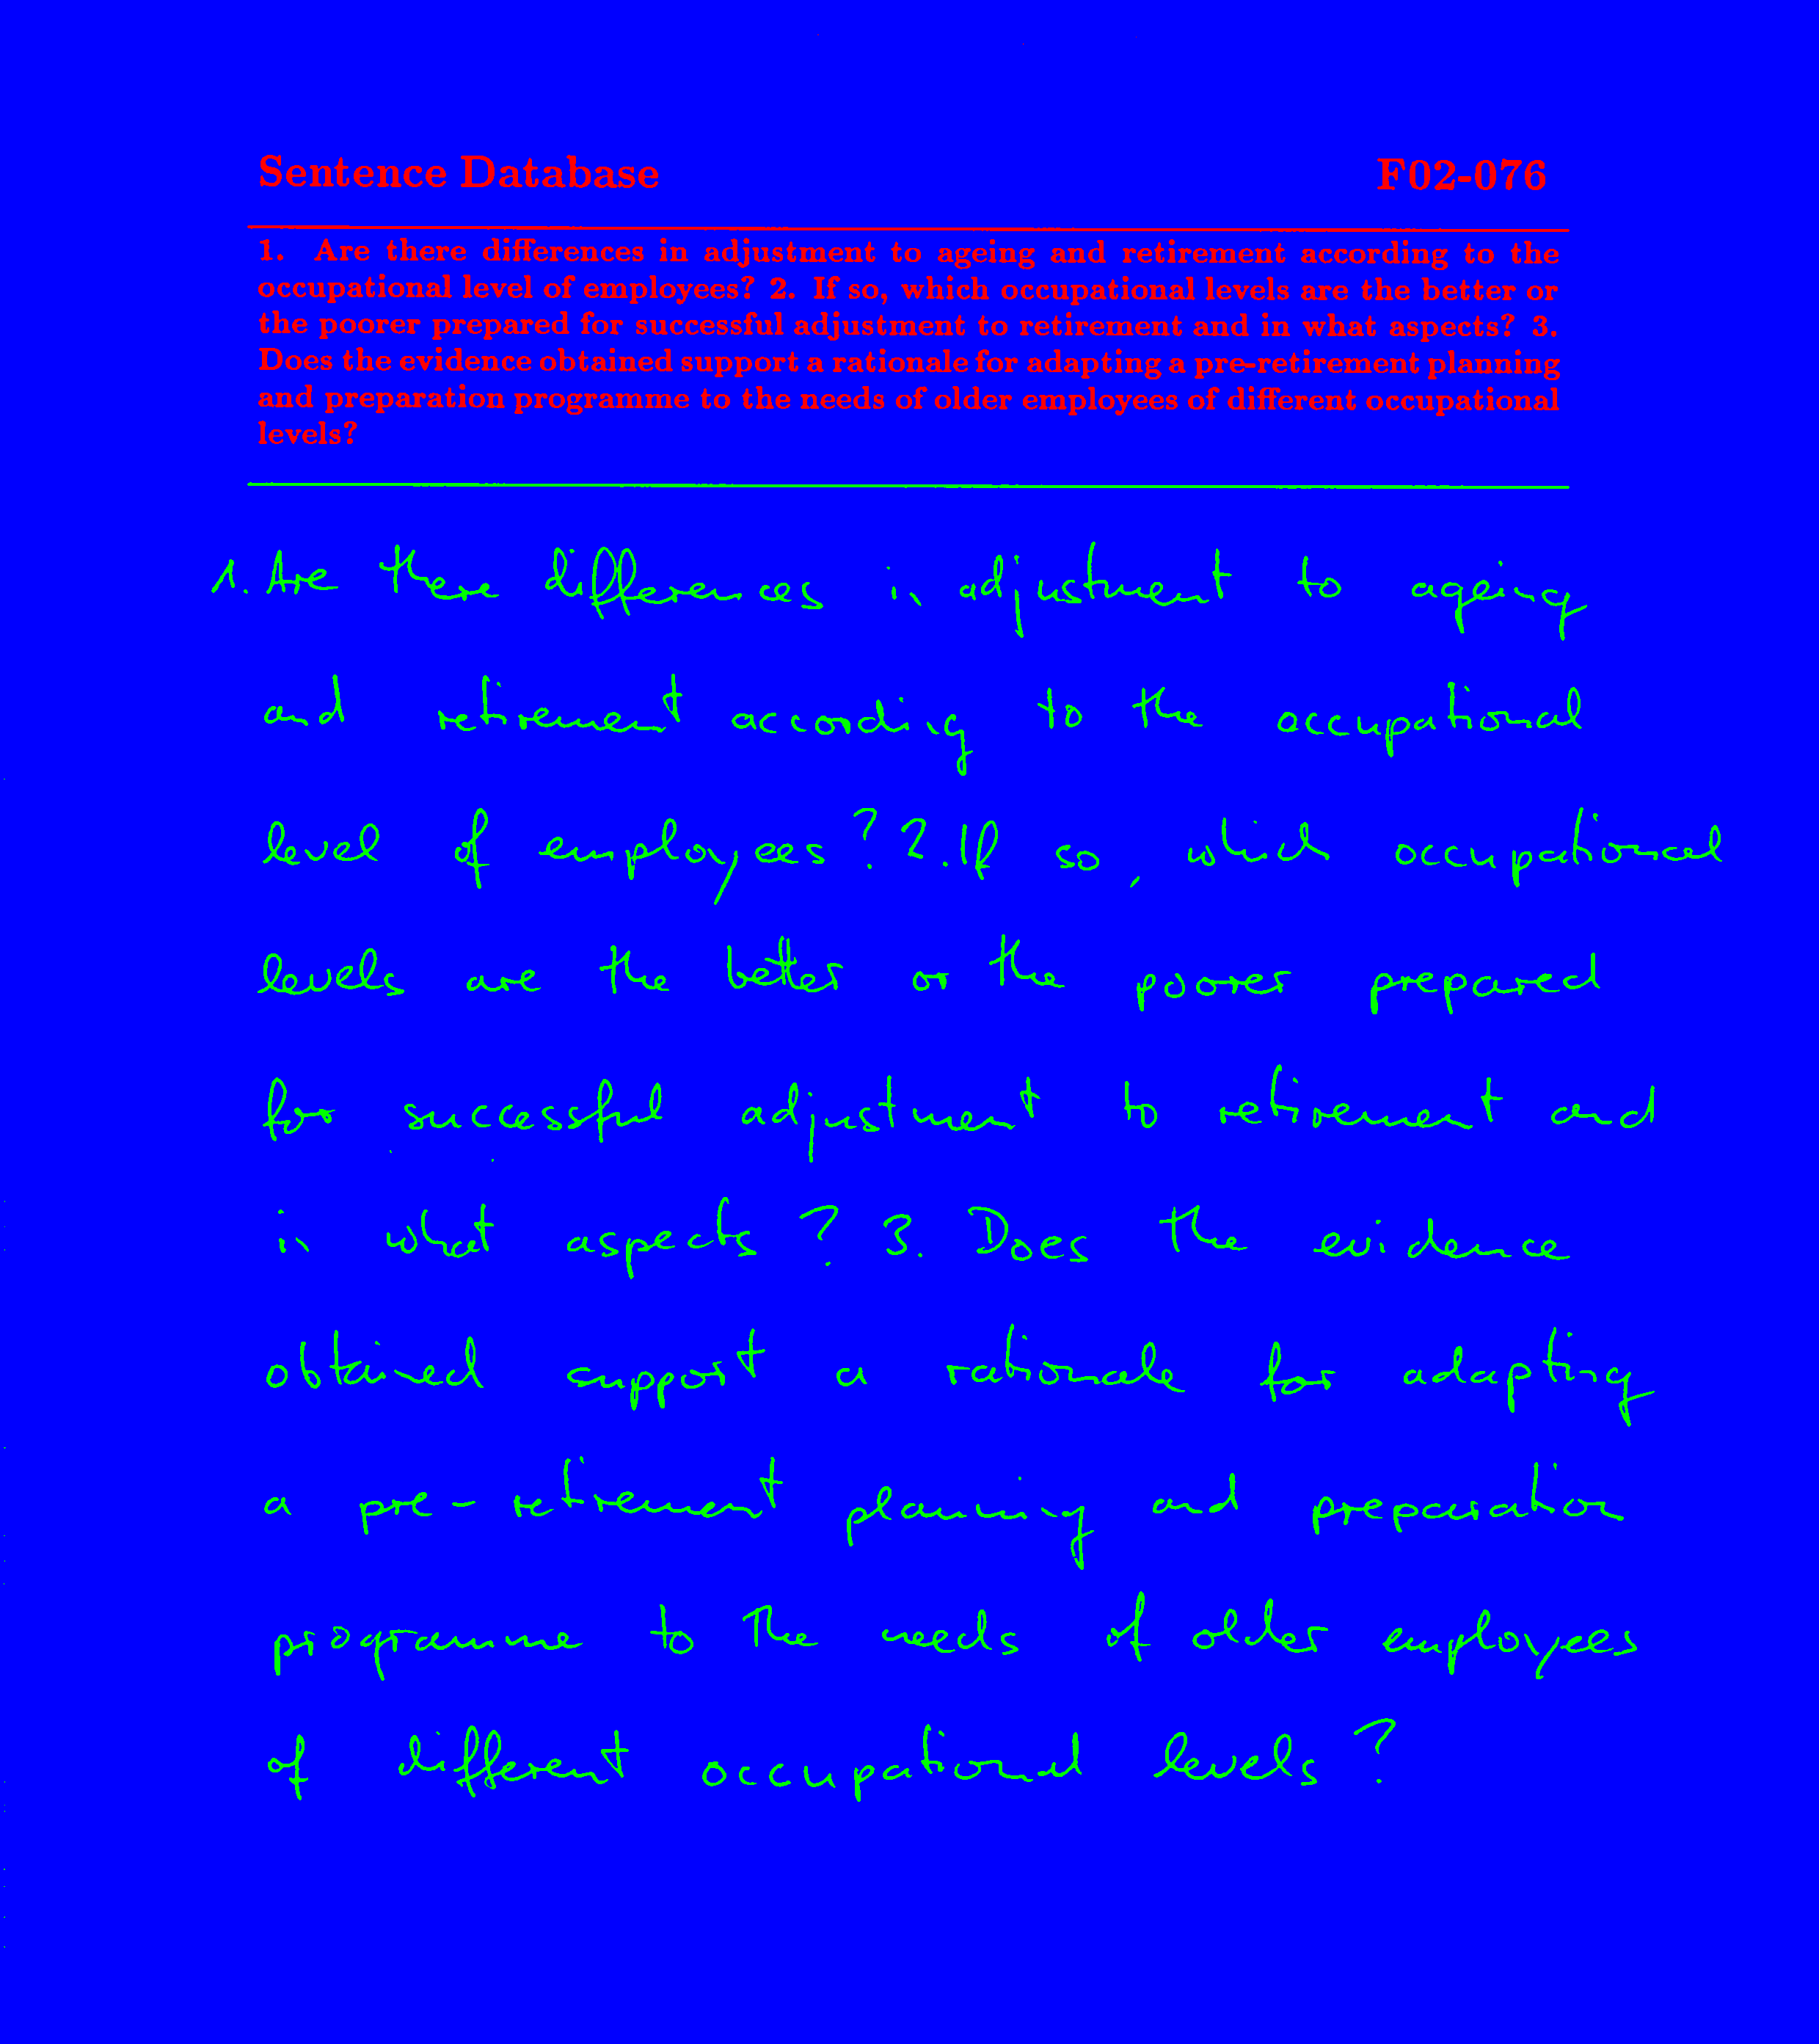 Sentence Database F02-076
1. Are there differences in adjustment to ageing and retirement according to the
occupational level of employees? 2. If so, which occupational levels are the better or
the poorer prepared for successful adjustment to retirement and in what aspects? 3.
Does the evidence obtained support a rationale for adapting a pre-retirement planning
and preparation programme to the needs of older employees of different occupational
levels?
1. Are there differences in adjustment to ageing
and retirement according to the occupational
level of employees? 2. If so, which occupational
levels are the better or the poorer prepared
for successful adjustment to retirement and
in what aspects? 3. Does the evidence
obtained support a rationale for adapting
a pre-retirement planning and preparation
programme to the needs of older employees
of different occupational levels?